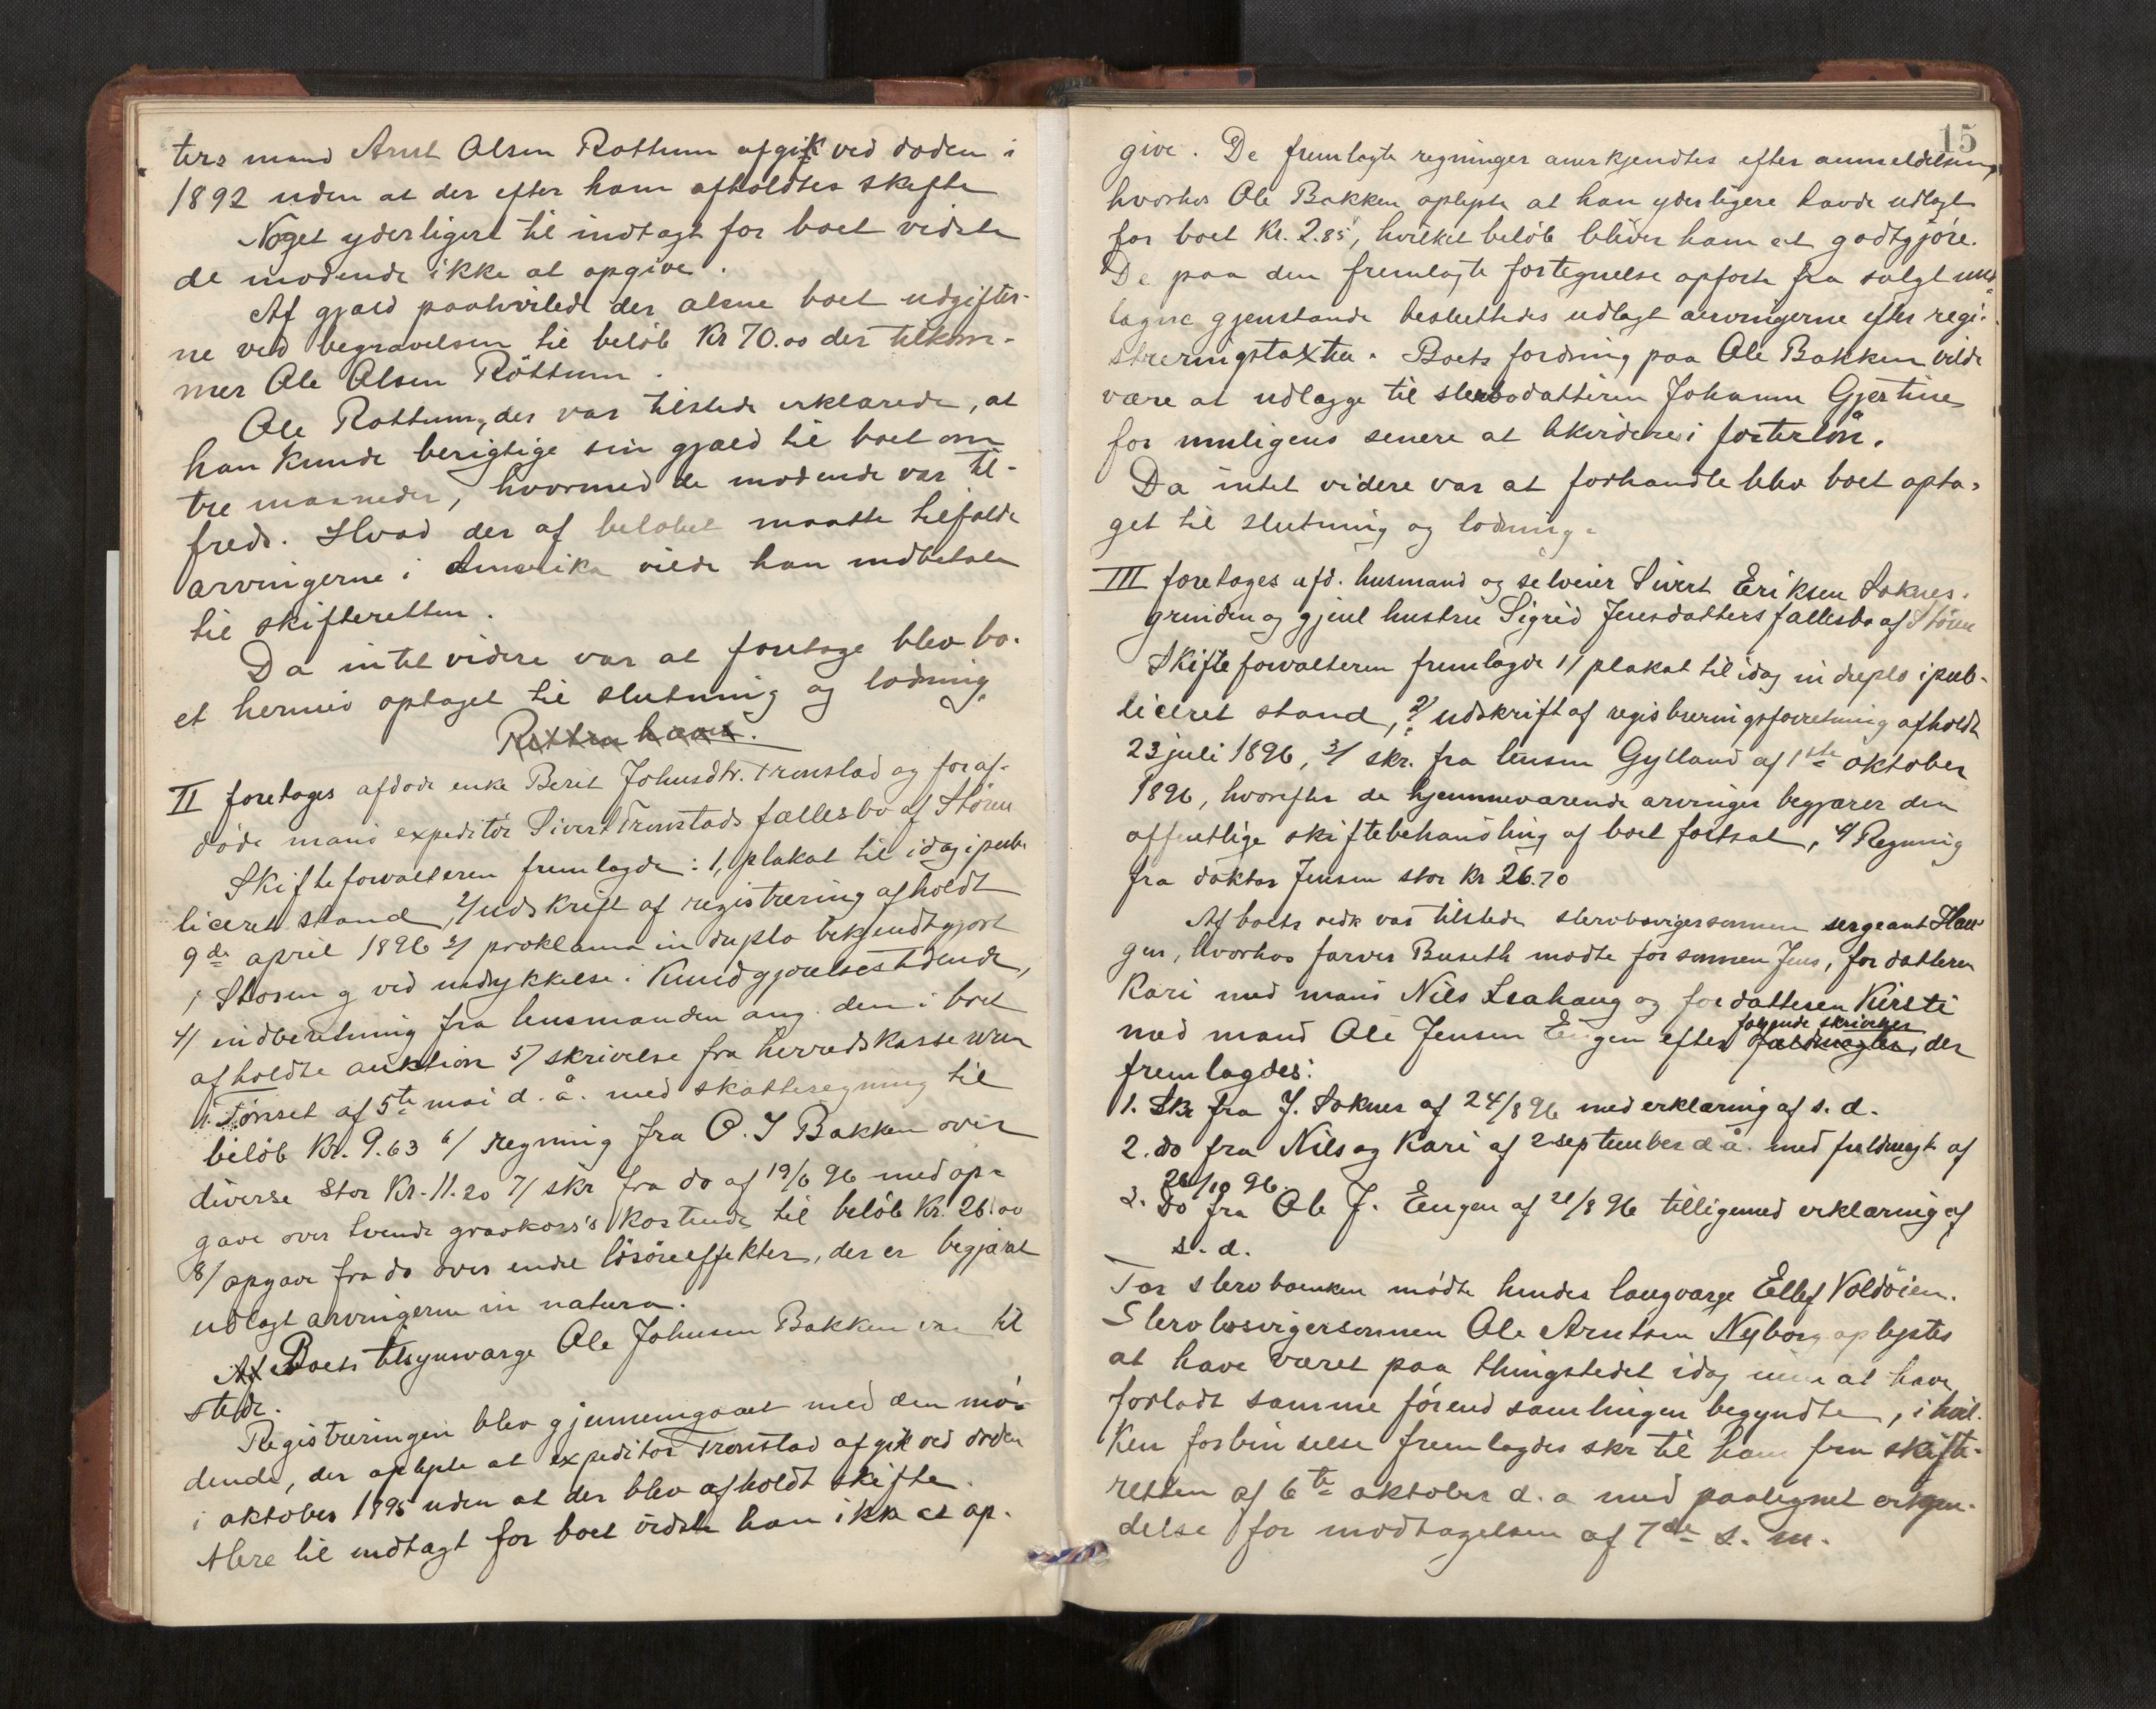 ters mand Arnt Olsen Rottum afgik ved döden i
1892 uden at der efter ham afholdtes skifte
Noget yderligere til indtægt for boet vidste
de mödende ikke at opgive.
Af gjæld paahvilede der alene boet udgifter-
ne ved begravelsen til belöb Kr 70.00 der tilkom-
mer Ole Olsen Röttum.
Ole Rottum, der var tilstede erklærede, at
han kunde berigtige sin gjæld til boet om
tre maaneder, hvormed de mödende var til-
freds. Hvad der af belöbet maatte tilfalde
arvingerne i Amerika vilde han indbetale
til skifteretten.
Da intet videre var at foretage blev bo-
et hermed optaget til slutning og lodning.
Retten hævet.
II foretages afdöde enke Berit Johnsdtr. Tronstad og foraf-
döde mand expeditör Sivert Tronstads fællesbo af Stören
Skifteforvalteren fremlagde: 1, plakat til idag i pub-
liceret stand, 2/ udskrift af registrering afholdt
9de april 1896 3/ proklama in duplo bekjendtgjort
i Stören g ved indrykkelse i Kundgjörelsestidende,
4/ indberetning fra lensmanden ang. den i boet
afholdte auktion 5/ skrivelse fra herredskassereren
i Tönset af 5te mai d. å. med skatteregning til
belöb Kr. 9.63 6/ regning fra O. J Bakken over
diverse stor Kr. 11.20 7/ skr fra do af 19/6 96 med op-
gave over tvende gravkors's kostende til belöb Kr. 26.00
8/ opgave fra do over endel lösöreeffekter, der er begjært
udlagt arvingerne in natura.
Af Boets tilsynsværge Ole Johnsen Bakken var til
stede.
Registreringen blev gjennemgaaet med den mö-
dende, der oplyste at expeditör Tronstad afgik ved döden
i oktober 1895 uden at der blev afholdt skifte.
Mere til indtægt for boet vidste han ikke at op-
15
give. De fremlagte regninger anerkjendtes efter anmeldelsen,
hvorhos Ole Bakken oplyste at han yderligere havde udlagt
for boet Kr. 2.85, hvilket belöb bliver ham at godtgjöre.
De paa den fremlagte fortegnelse opförte fra salget und-
tagne gjenstande besluttedes udlagt arvingerne efter regi-
streringstaxten. Boets fordring paa Ole Bakken vilde
være at udlægge til stervbodatteren Johanne Gjertine
for muligens senere at likvideres i fosterlön.
Da intet videre var at forhandle blev boet opta-
get til slutning og lodning.
III foretages afd. husmand og selveier Sivert Eriksen Soknes-
grinden og gjenl hustru Sigrid Jensdatters fællesbo af Stören
Skifteforvalteren fremlagde 1/ plakat til idag in duplo i pub-
liceret stand, 2/ udskrift af registreringsforretning afholdt
23 juli 1896, 3/ skr. fra lensm Gylland af 1ste oktober
1896, hvorefter de hjemmeværende arvinger begjærer den
offentlige skiftebehandling af boet fortsat, 4/ Regning
fra doktor Jensen stor Kr 26.70
Af boets vedk var tilstede stervbosvigersönnen sergeant Hau-
gen, hvorhos farver Buseth mödte for sönnen Jens, for datteren
Kari med mand Nils Leahaug og for datteren Kirsti
med mand Ole Jensen Engen efter fuldmagter, der
fölgende skrivelser
fremlagdes:
1. Skr fra J. Soknes af 24/8 96 med erklæring af s. d.
2. do fra Nils og Kari af 2 september d å. med fuldmagt af
26/10 96.
3. Do fra Ole J. Eengen af 21/8 96 tilligemed erklæring af
s. d.
For stervboenken mödte hendes laugværge Ellef Voldöien.
Stervbosvigersönnen Ole Arntsen Nyborg oplystes
at have været paa thingstedet idag men at have
forladt samme förend samlingen begyndte, i hvil-
ken forbindelse fremlagdes skr til ham fra skifte-
retten af 6te oktober d. a med paategnet erkjen-
delse for modtagelsen af 7de s. m.